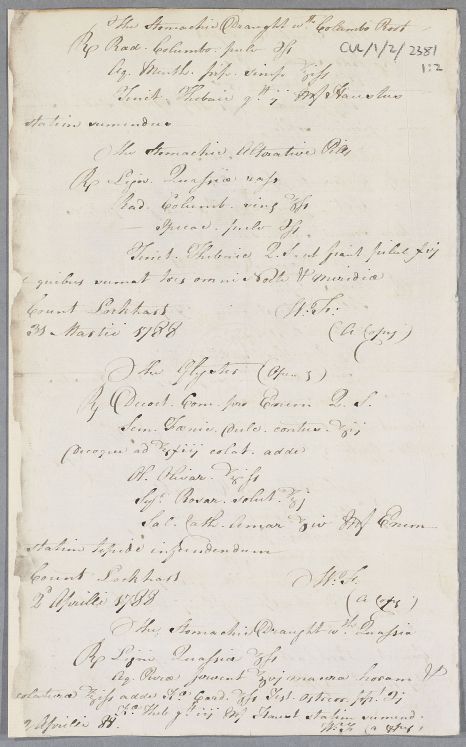 The Stomachic Draught wth Columbo Root
CUL/1/2/2381
1:2
℞ Rad. Columbo. pulv ℈fs
Aq. Menth. pip. simp ℥ifs
Tinct. Thebaic gtt ij Mf Haustus
statim sumendus
The Stomachic Alterative Pills
℞ Lign. Quassiæ rasp
Rad. Columb. aa ʒfs
— Ipecac. pulv ℈fs
Tinct. Thebaic Q.S. ut fiant pilul
e quibus sumat tres omni Nocte & meridie
Count Lockhart
H. Fr.
31 Martii 1788
(a Copy)
The Glyster (Apern)
℞ Decoct. Com. pro Enem Q.S.
Sem. Fœnic. dulc. contus. ʒij
Decoque ad ℥ colat. adde
Ol. Olivar. ℥ifs
Syr. Rosar. solut. ℥j
Sal. Cath. Amar ʒiv Mf Enem
statim tepide infundendum
Count Lockhart
H. Fr.
2d Aprilis 1788
(a Copy)
The Stomachic Draught wth Quassia
℞ Lign Quassiæ ʒfs
Aq. Puræ fervent ℥vj macera horam &
colaturæ ℥ifs adde Tra Card. ʒfs Test. ostreor. pp. ℈j
Tra Theb gtt iij Mf Haust statim sumend.
2 Aprilis 88.
H. Fr (a Copy)